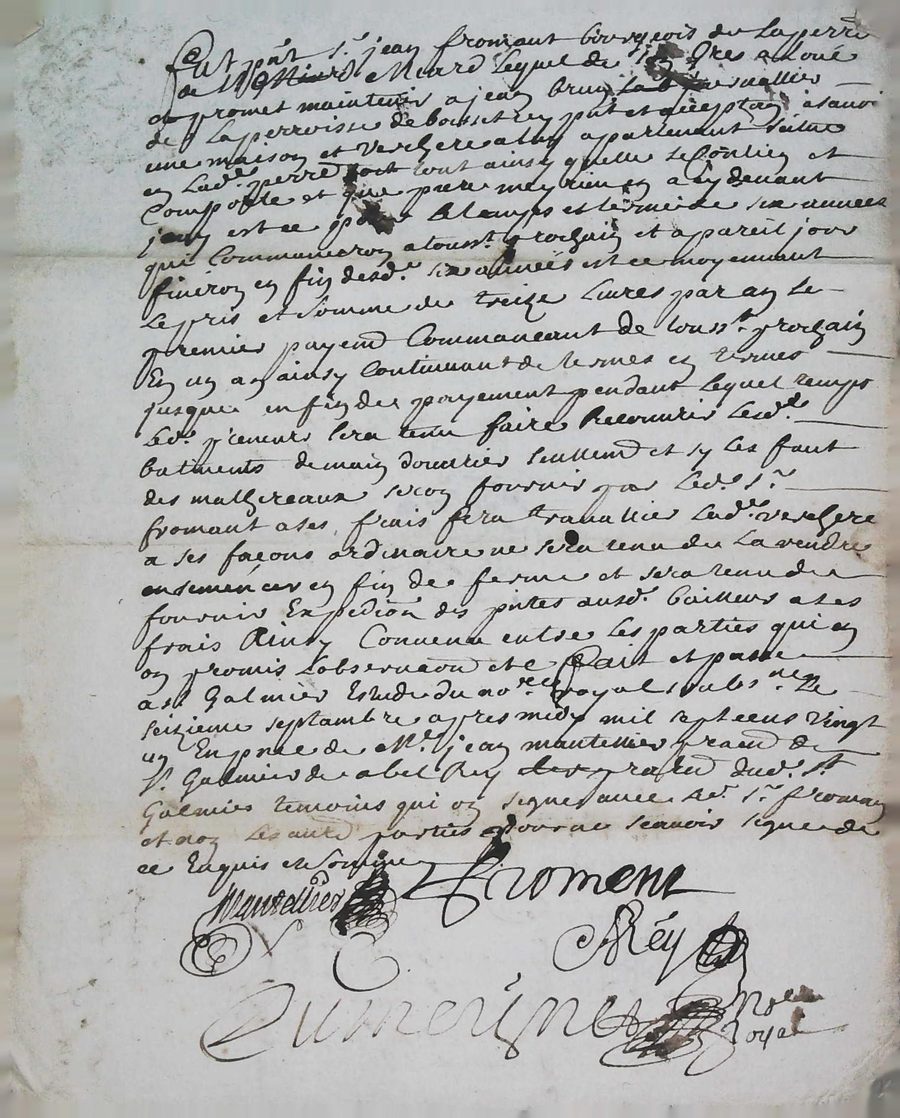 fut pñt sr. jean fromant bourgeois de la perr
de Meard lequel de a loué
et promet maintenir a jean brun
de la perroisse de boisset pñt et acceptan a savoir
une maison et verchere a luy apartenant situe
en lade. perre tout ainsy quelle se contien et
comporte et que par en a cy devant
jouy est ce pour le temps et terme de six années
qui commanceron a tousst. prochain et a pareil jour
fineron en fin desd. six années est ce moyennant
le pris et somme de treize livres par an le
premier payemt commancant de tousst. prochain
en un an ainsy continuant de termes en termes
jusque en fin de payement pendant lequel temps
led. preneur sera tenu faire recouvrir lesd.
batiments de main douvrier seullemt et sy les faut
des mathereaux seron fournir par led. sr.
fromant a ses frais fera travallier lade. verchere
a ses façons ordinaire ne sera tenu de la rendre
ensemencer en fin de ferme et sera tenu de
fournir expedition des pñtes ausd. bailleur a ses
frais Ainsy convenu entre les parties qui en
on promis l'observaon etc fait et passe
a st Galmier estude du nore royal soubsne le
seizieme septambre apres midy mil sept cens vingt
un En pñce de Me. jean mantellier pratn de
st. Galmier de abel Rey pratn dud. st
Galmier temoins qui on signe avec led. sr. froman
et non les autre parties pour ne scavoir signe de
ce Enquis et somme
Mantellier fromant
Réy
Dumeynet Nore
Royal